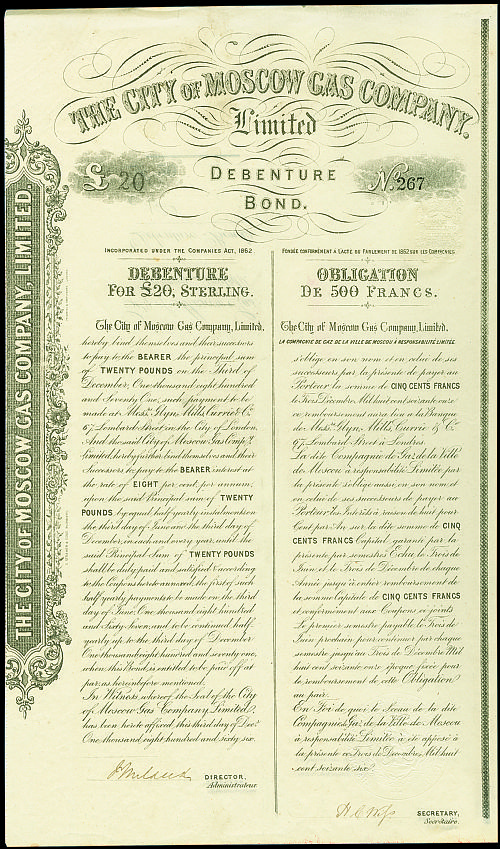 THE CITY OF MOSCOW GAS COMPANY.
Limited
£ 20
DEBENTURE
BOND.
No. 267
THE CITY OF MOSCOW GAS COMPANY, LIMITED
INCORPORATED UNDER THE COMPANIES ACT, 1862
DEBENTURE
FOR £20, STERLING.
The City of Moscow Gas Company, Limited,
hereby bind themselves and their successors
to pay to the BEARER the principal sum
of TWENTY POUNDS on the Third of
December One thousand eight hundred
and Seventy One, such payment to be
made at Messrs. Glyn, Mills, Currie & Co.
67 Lombard Street in the City of London.
And the said City of Moscow Gas Compy.
Limited hereby further bind themselves and their
Successors to pay to the BEARER interest at
the rate of EIGHT per cent per annum,
upon the said Principal sum of TWENTY
POUNDS by equal half yearly instalments on
the third day of June and the third day of
December, in each and every year, until the
said Principal Sum of TWENTY POUNDS
shall be duly paid and satisfied according
to the Coupons hereto annexed, the first of such
half yearly payments to be made on the third
day of June, One thousand eight hundred
and Sixty seven and to be continued half
yearly up to the third day of December
One thousand eight hundred and seventy one,
when this Bond is entitled to be paid off at
par, as hereinbefore mentioned.
In Witness whereof the Seal of the City
of Moscow Gas Company, Limited
has been hereto affixed, this third day of Decr.
One thousand, eight hundred and sixty six.
DIRECTOR,
Administrateur.
FONDÉE CONFORMÉMENT A L'ACTE DU PARLEMENT DE 1862 SUR LES COMPAGNIES
OBLIGATION
DE 500 FRANCS.
The City of Moscow Gas Company, Limited.
LA COMPAGNIE DE GAZ DE LA VILLE DE MOSCOU À RESPONSABILITÉ LIMITÉE
s'oblige en son nom et en celui de ses
successeurs par la présente de payer au
Porteur la somme de CINQ CENTS FRANCS
le Trois Décembre Mil huit cent soixante onze
ce remboursement aura lieu a la Banque
de Messrs. Glyn, Mills, Currie & Co.
67, Lombard Street à Londres.
La dite Compagnie de Gaz de la Ville
de Moscou à responsabilité Limitée par
la présente s'oblige aussi en son nom et
en celui de ses successeurs de payer au
Porteur les Intérêts à raison de huit pour
Cent par An sur la dite somme de CINQ
CENTS FRANCS Capital garanti par la
présente par semestres Echu, le Trois de
Juin, et le Trois de Décembre de chaque
Année jusqu'à entier remboursement de
la somme Capitale de CINQ CENTS FRANCS
et conformément aux Coupons ci-joints
Le premier semestre payable le Trois de
Juin prochain pour continuer par chaque
semestre jusqu'au Trois de Décembre Mil
huit cent soixante onze époque fixée pour
le remboursement de cette Obligation
au pair.
En Foi de quoi le Sceau de la dite
Compagnie de Gaz de la Ville de Moscou
à responsabilité Limitée à été apposé à
la présente ce Trois de Décembre, Mil huit
cent soixante six.
SECRETARY,
Secrétaire.